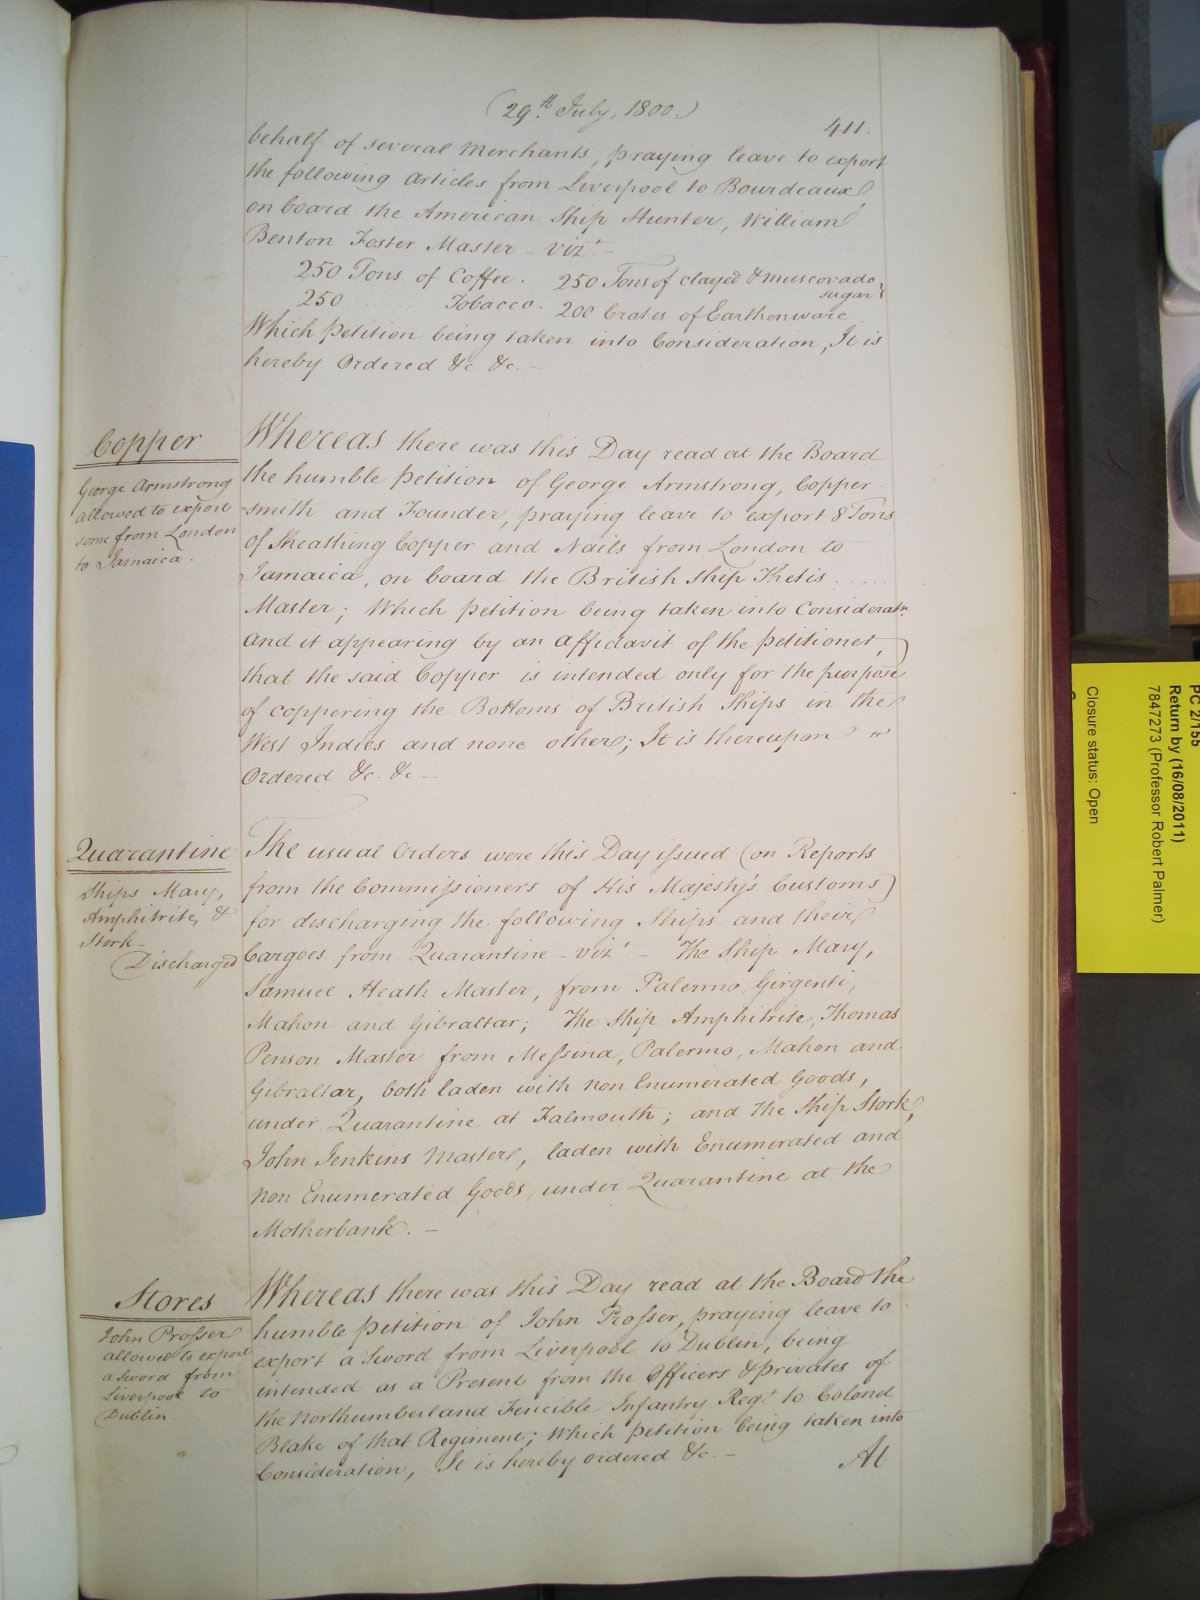 (29th July, 1800.)
411.
behalf of several Merchants, praying leave to export
the following Articles from Liverpool to Bourdeaux,
on board the American Ship Hunter, William
Benton Foster Master - vizt. -
250 Tons of Coffee. 250 Tons of clayed & muscovado sugars
250 ...... Tobacco. 200 Crates of Earthenware
Which Petition being taken into Consideration, It is
hereby Ordered &c. &c. -
Copper
George Armstrong
allowed to export
some from London
to Jamaica.
Whereas there was this Day read at the Board
the humble Petition of George Armstrong, Copper-
-smith and Founder, praying leave to export 8 Tons
of Sheathing Copper and Nails from London to
Jamaica, on board the British Ship Thetis .....
Master; Which Petition being taken into Consideratn.
and it appearing by an Affidavit of the Petitioner,
that the said Copper is intended only for the purpose
of coppering the Bottoms of British Ships in the
West Indies and none other; It is thereupon "
Ordered &c. &c -
Quarantine
Ships Mary,
Amphitrite, &
Stork -
Discharged
The usual Orders were this Day issued (on Reports
from the Commissioners of His Majesty's Customs)
for discharging the following Ships and their
Cargoes from Quarantine - vizt. - The Ship Mary,
Samuel Heath Master, from Palermo, Girgenti,
Mahon and Gibraltar; The Ship Amphitrite, Thomas
Penson Master from Messina, Palermo, Mahon and
Gibraltar, both laden with non Enumerated Goods,
under Quarantine at Falmouth; and the Ship Stork,
John Jenkins Master, laden with Enumerated and
non Enumerated Goods, under Quarantine at the
Motherbank. -
Stores
John Prosser
allowed to export
a Sword from
Liverpool to
Dublin.
Whereas there was this Day read at the Board the
humble Petition of John Prosser, praying leave to
export a Sword from Liverpool to Dublin, being
intended as a Present from the Officers & privates of
the Northumberland Fencible Infantry Regt. to Colonel
Blake of that Regiment; Which Petition being taken into
Consideration, It is hereby ordered &c. -
At
PC 2/155
Return by (16/08/2011)
7847273 (Professor Robert Palmer)
Closure status: Open